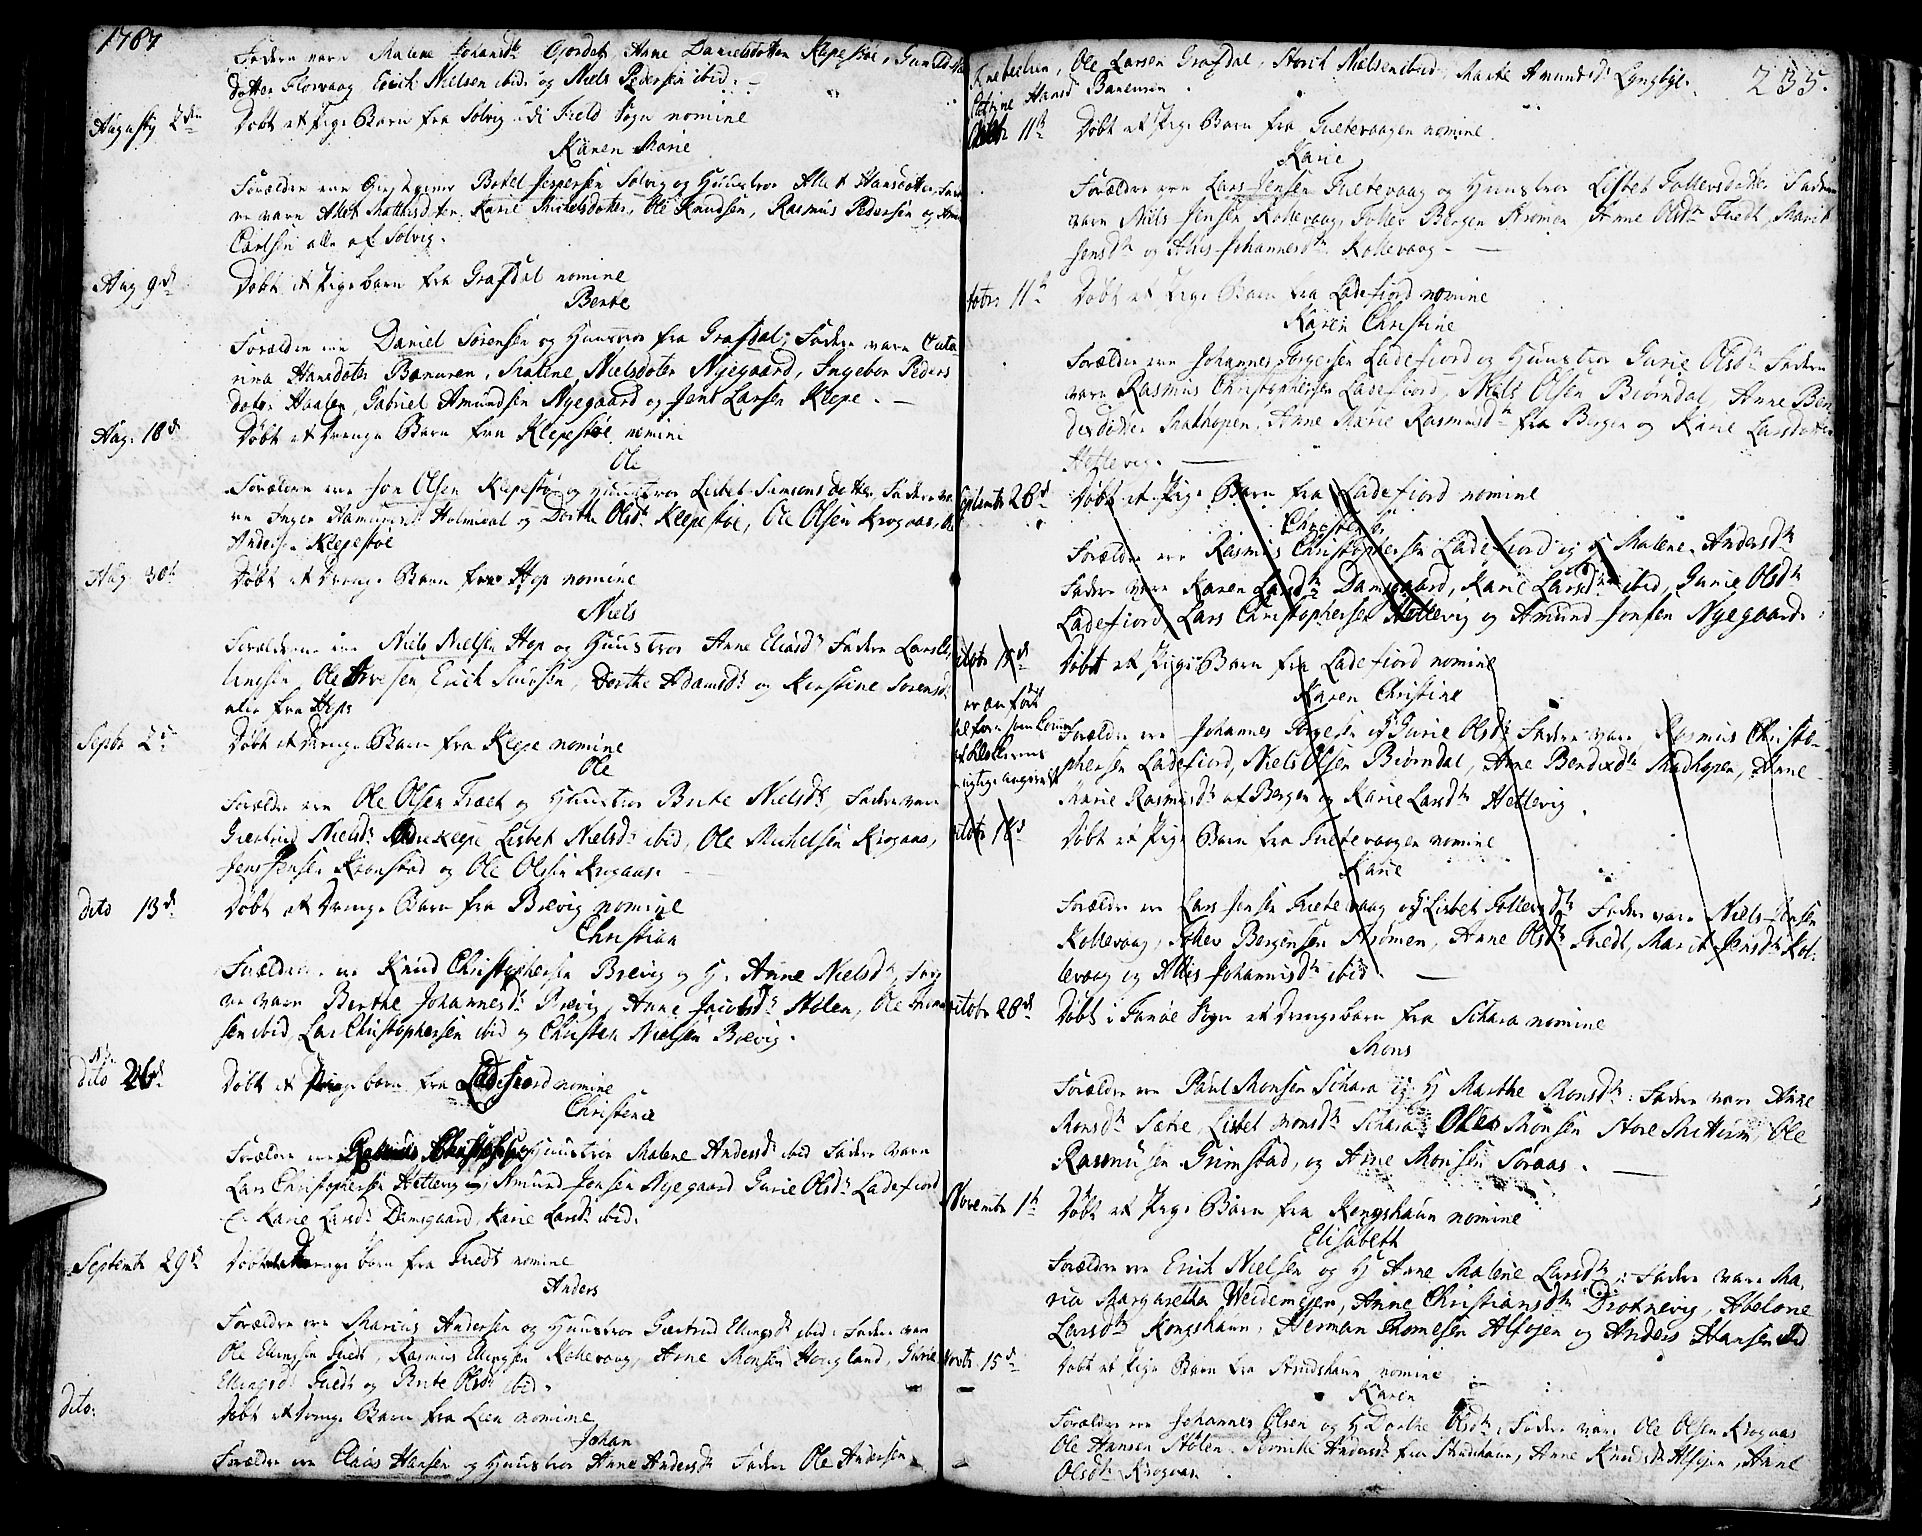 1787
Faddere vare Malene Johansdtr Gjerdet, Anne Danielsdotter Klepestøe, Gunild
dotter Florvaag Erich Nielsen ibid. og Niels Pedersen ibid. —
Augusty 2den Døbt et Pige Barn fra Solvig i Field Sogn nomine
Karen Marie
Forældre ere Botel Jespersen Solvig og Huustroe Alet Hansdotter, Fadde
re vare Alet Mathisdtter, Karie Michelsdotter, Ole Knudsen, Rasmus Pedersen og
Carlsen alle af Solvig.
Aug 9de Døbt et Pigebarn fra Grafdal nomine
Bente
Forældre ere Daniel Sørensen og Huustroe fra Grafdal; Faddere vare Cata
rina Hansdoter Baneren, Malene Nielsdoter Nyegaard, Ingebor Peders
doter Haalen, Gabriel Amundsen Nyegaard og Jens Larsen Klepe. —
Aug. 18de Døbt et Drenge Barn fra Klepestøe nomine
Ole
Forældre ere Jon Olsen Klepestø og Huustroe Lisbet Simonsdatter, Faddere va
re Inger Holmedal og Dorthe Olsdtr Klepestøe, Ole Olsen Krogaas,
Anders Klepestøe
Aug. 30te Døbt et Drenge Barn fra Hop nomine
Niels
Forældrene ere Niels Nielsen Hop og Huustroe Anne Eliasdtr Faddere Lars
Ole Iversen Erich Dorthe Adamsdtr og Kirstine Sørensdtr
alle fra Hop
Septbr 2de Døbt et Drenge Barn fra Klepe nomine
Ole
Forældre ere Ole Olsen Træet og Huustroe Brite Nielsdtr, Faddere vare
Giertrud Nielsdtr Klepe Lisbet Nielsdtr ibid, Ole Michelsen Krogaas,
Jens Jensen og Ole Olsen Krogaas.
dito 13de Døbt et Drenge Barn fra Brevig nomine
Christian
Forældre ere Knud Christophersen Brevig og H. Anne Nielsdtr, Fadde
re vare Berthe Johannesdtr Brevig, Anne Jacobsdtr Stølen, Ole
sen ibid, Lars Christophersen ibid og Christen Nielsen Brevig.
dito 26de Døbt et Pige barn fra Ladefiord nomine
Christence
Forældre ere Rasmus Christophersen Huustroe Malene Andersdtr ibid Faddere vare
Lars Christophersen Hettevig Amund Jonsen Nyegaard Gurie Olsdtr Ladefiord
Karie Larsdtr Damsgaard, Karie Larsdtr ibid.
Septembr 29de Døbt et Drenge barn fra Tuedt nomine
Anders
Forældre ere Marcus Andersen og Huustroe Giertrud Ellingsdtr ibid. Faddere vare
Ole Ellingsen Tuedt, Rasmus Ellingsen Kollevaag, Arne Monsen Hougland, Gurie
Ellingsdtr Tuedt og Brite Olsdtr ibid.
dito. Døbt et Drenge Barn fra Lien nomine
Johan
Forældre ere Claus Hansen og Huustroe Anne Andersdtr Faddere Ole Andersen
235.
Knebelsen, Ole Larsen Grafdal, Storik Nielsen ibid, Marte Amundsdtr Lyngbye.
Hansdtr Baneren
Octobr 11te Døbt et Pige Barn fra Tuetevaagen nomine
Karie
Forældre ere Lars Jensen Tuetevaag og Huustroe Lisbet Tollevsdotter Faddere
vare Niels Jensen Kollevaag, Tollev Bergen Strømen Anne Olsdtr Tuedt, Marit
Jensdtr og Johannesdtr Kollevaag —
Octobr 11te Døbt et Pige Barn fra Ladefiord nomine
Karen Christine
Forældre ere Johannes Torgersen Ladefiord og Huustroe Gurie Olsdtr Faddere
vare Rasmus Christophersen Ladefiord, Niels Olsen Biørndal, Anne Ben
dixdotter Mathopen, Anne Marie Rasmusdtr fra Bergen og Karie Larsdotter
Hettevig. —
Septembr 26de Døbt et Pige Barn fra Ladefiord nomine
Forældre ere Rasmus Christophersen Ladefiord og Malene Andersdtr
Faddere vare Karen Larsdtr Damsgaard, Karie Larsdtr ibid, Gurie Olsdtr
Ladefiord, Lars Christophersen Hettevig og Amund Jonsen Nyegaard.
Octobr 18de Døbt et Pige Barn fra Ladefiord nomine
Karen Christine
er anført
Forældre ere Johannes Torgersen og Gurie Olsdtr Faddere vare Rasmus Christo-
phersen Ladefiord, Niels Olsen Biørndal, Anne Bendixdtr Mathopen, Anne
Marie Rasmusdtr af Bergen og Karie Larsdtr Hettevig.
Octobr 18de Døbt et Pige Barn fra Tuetevaagen nomine
Karie
Forældre ere Lars Jensen Tuetevaag og Lisbet Tollevsdtr Faddere vare Niels Jensen
Kollevaag, Tollev Bergensen Strømen, Anne Olsdtr Tuedt, Marit Jensdtr Kol-
levaag og Johannisdtr ibid. —
Octobr 28de Døbt i Fanøe Sogn et Drengebarn fra Schara nomine
Mons
Forældre ere Paul Monsen Schara og H Marthe Monsdtr: Faddere vare Anne
Monsdtr Sætre, Lisbet Monsdtr Schara, Ole Monsen Store Milde, Ole
Rasmusen Grimstad, og Arne Monsen Soraas. —
Novembr 1te Døbt et Pige Barn fra Kongshaun nomine
Elisabeth
Forældre ere Erich Nielsen og H Anne Malene Larsdtr: Faddere vare Ma-
ria Margaretha Weidemejen, Anne Christiansdtr Drotnevig, Abelone
Larsdtr Kongshaun, Herman Thomesen Alføjen og Anders Hansen ibid
Novbr. 15de Døbt et Pige Barn fra Strudshaun nomine
Karen
Forældre ere Johannes Olsen og H Dorthe Olsdtr: Faddere vare Ole Olsen Krogaas
Ole Hansen Stølen, Andersdtr fra Strudshaun, Anne Knudsdtr Alføjen, Anne
Olsdtr Krogaas